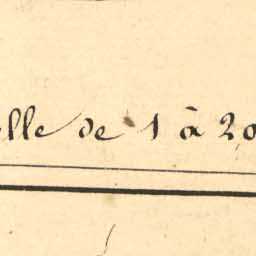 elle de 1 à 20